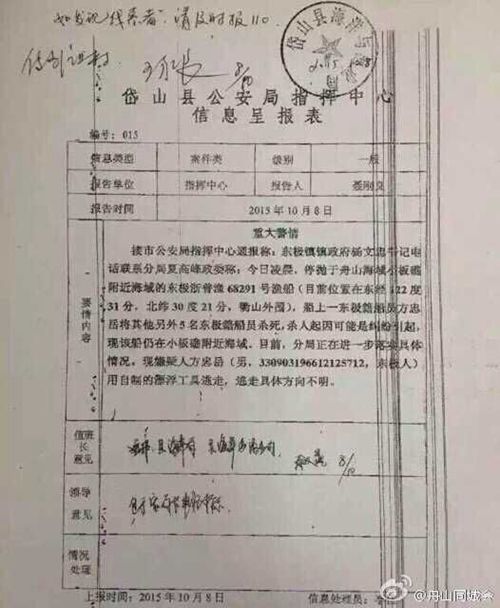 如发现线索者,请及时报110
岱山县海洋与渔业局
2015
8/10
岱山县公安局指挥中心
信息呈报表
编号:015
信息类型 案件类 级别 一般
报告单位 指挥中心 报告人
报告时间 2015年10月8日
要情内容
重大警情
接市公安局指挥中心通报称:东极镇镇政府杨文忠书记电
话联系分局夏高峰政委称:今日凌晨,停抛于舟山海域小板礁
附近海域的东极浙普渔68291号渔船(目前位置在东经122度
31分,北纬30度21分,衢山外围),船上一东极籍船员方忠
岳将其他另外5名东极籍船员杀死,杀人起因可能是纠纷引起,
现该船仍在小板礁附近海域。目前,分局正在进一步落实具体
情况,现嫌疑人方忠岳(男,,东极人)
用自制的漂浮工具逃走,逃走具体方向不明。
值班长意见
8/10
领导意见
情况处理
上报时间:2015年10月8日 信息处理员:
@舟山同城